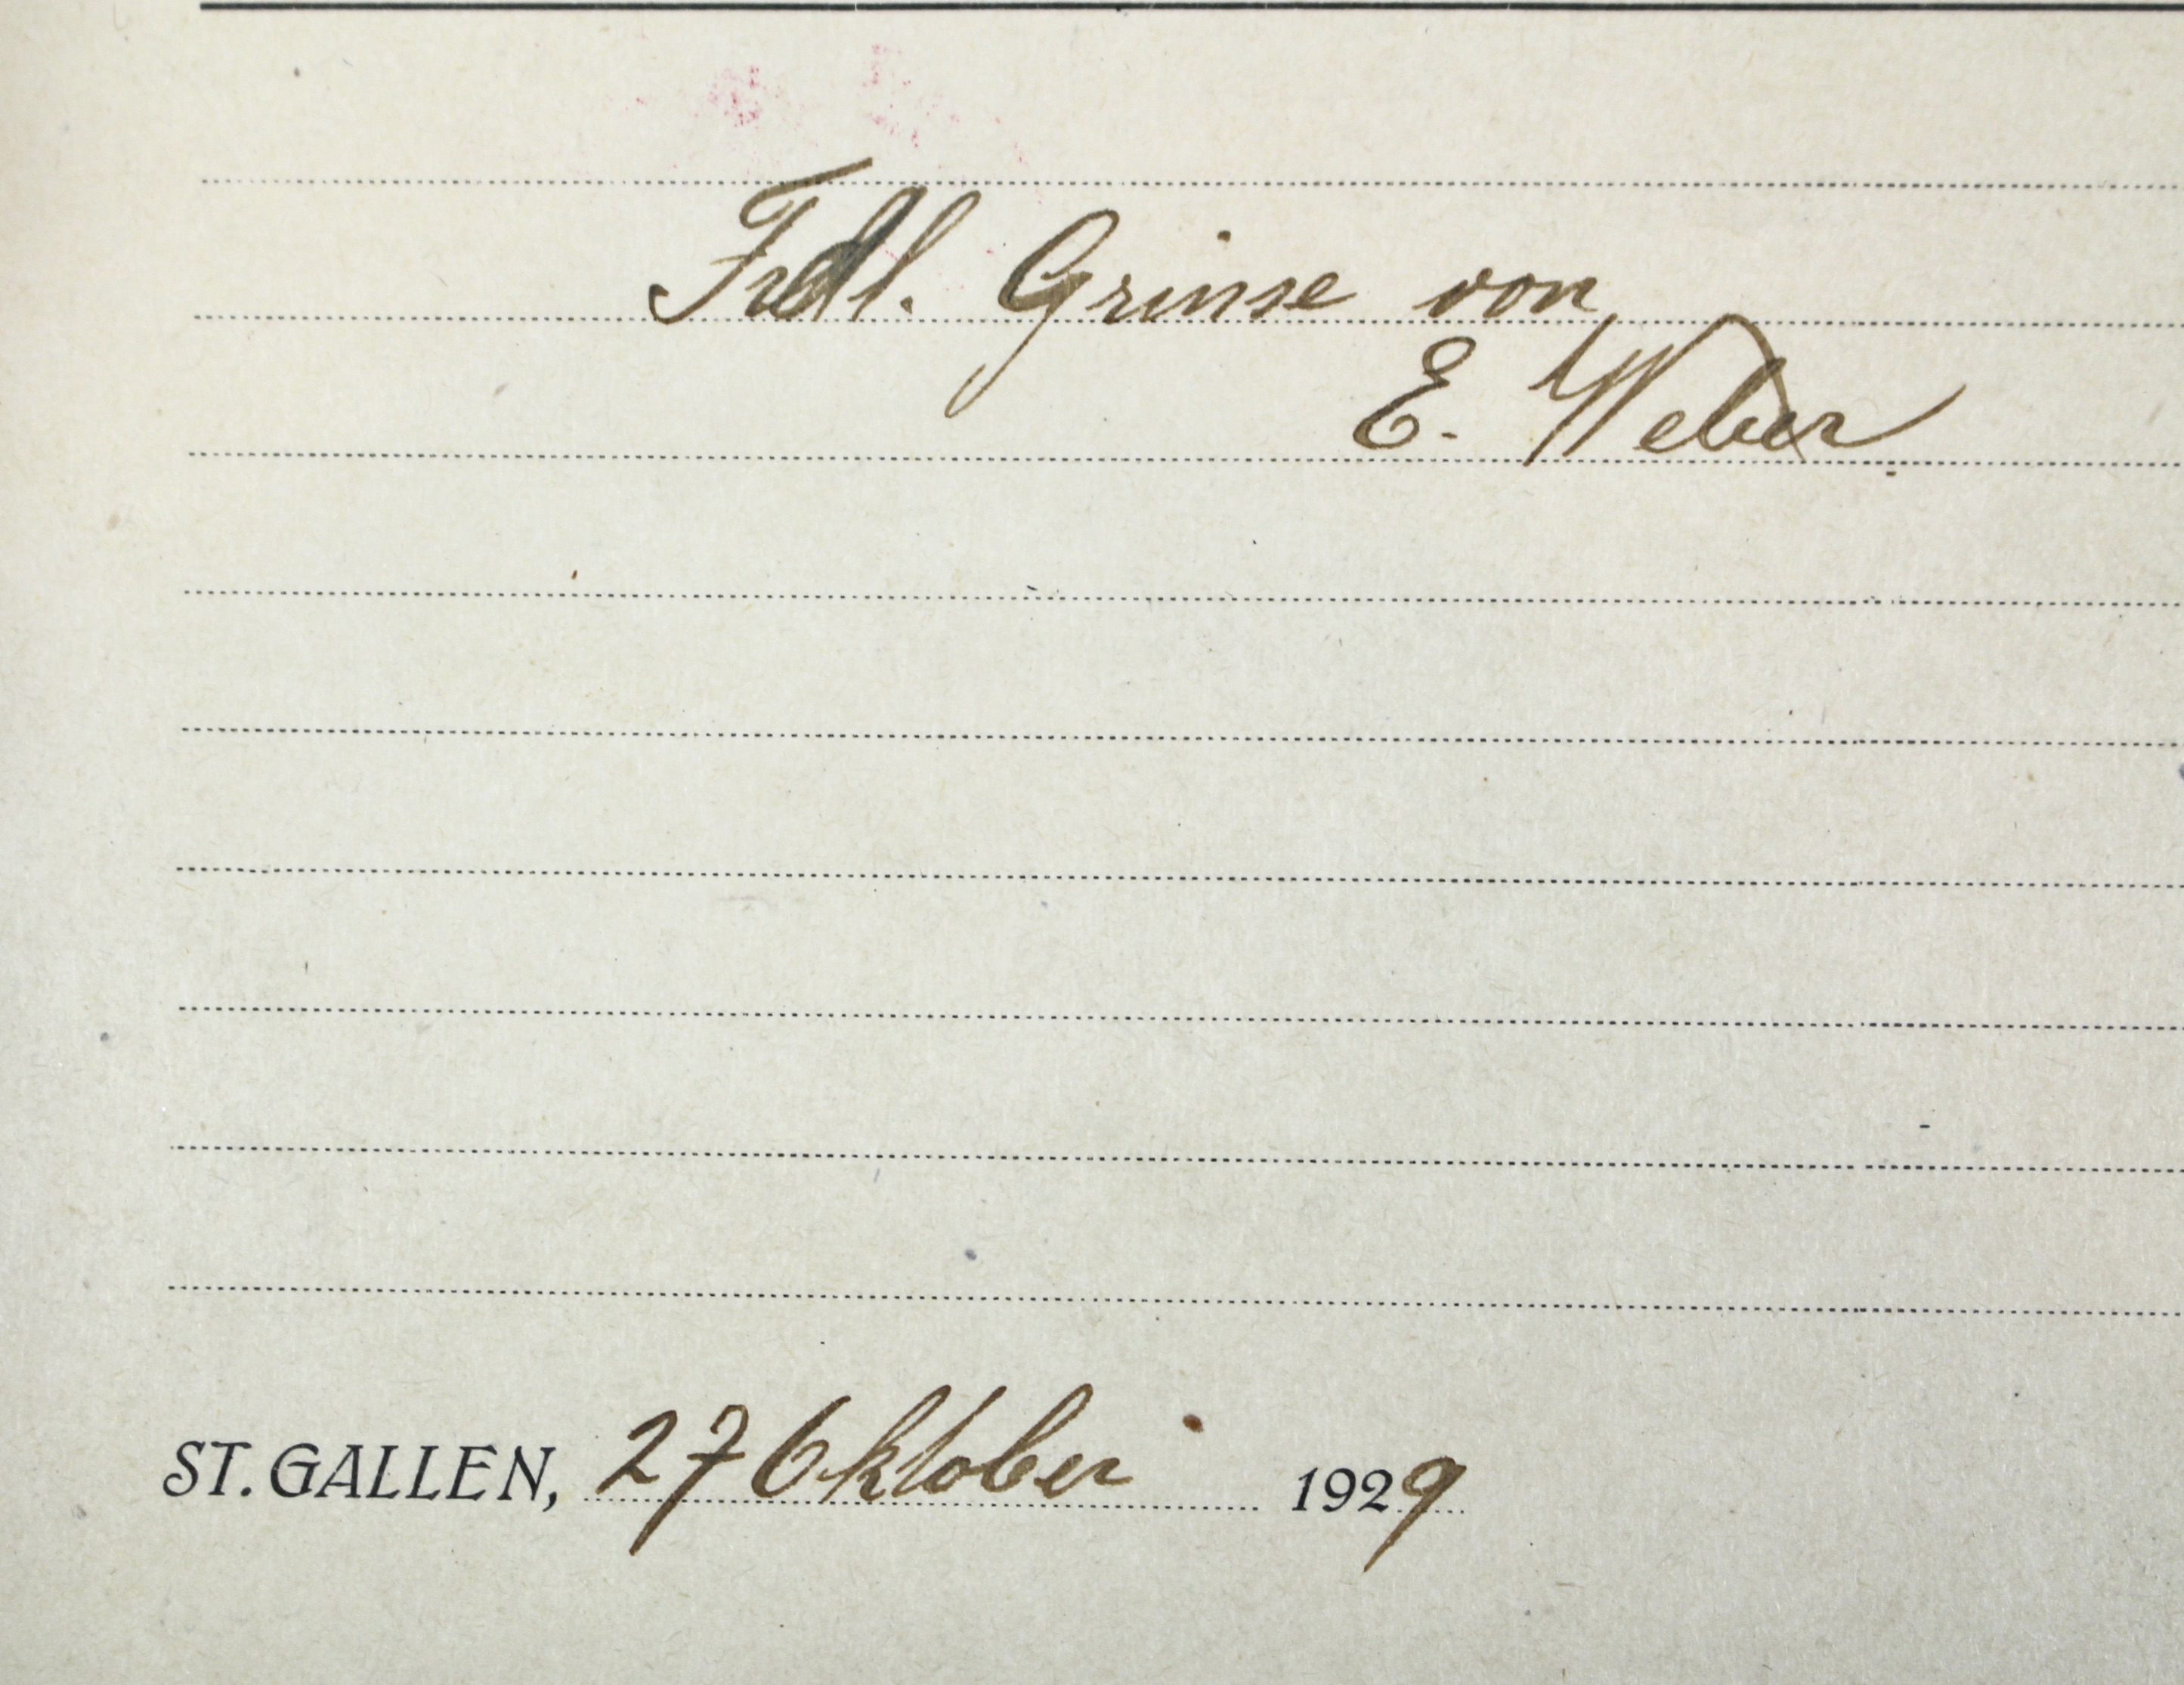 Frdl. Grüsse von
E. Weber
ST. GALLEN, 27 Oktober 1929